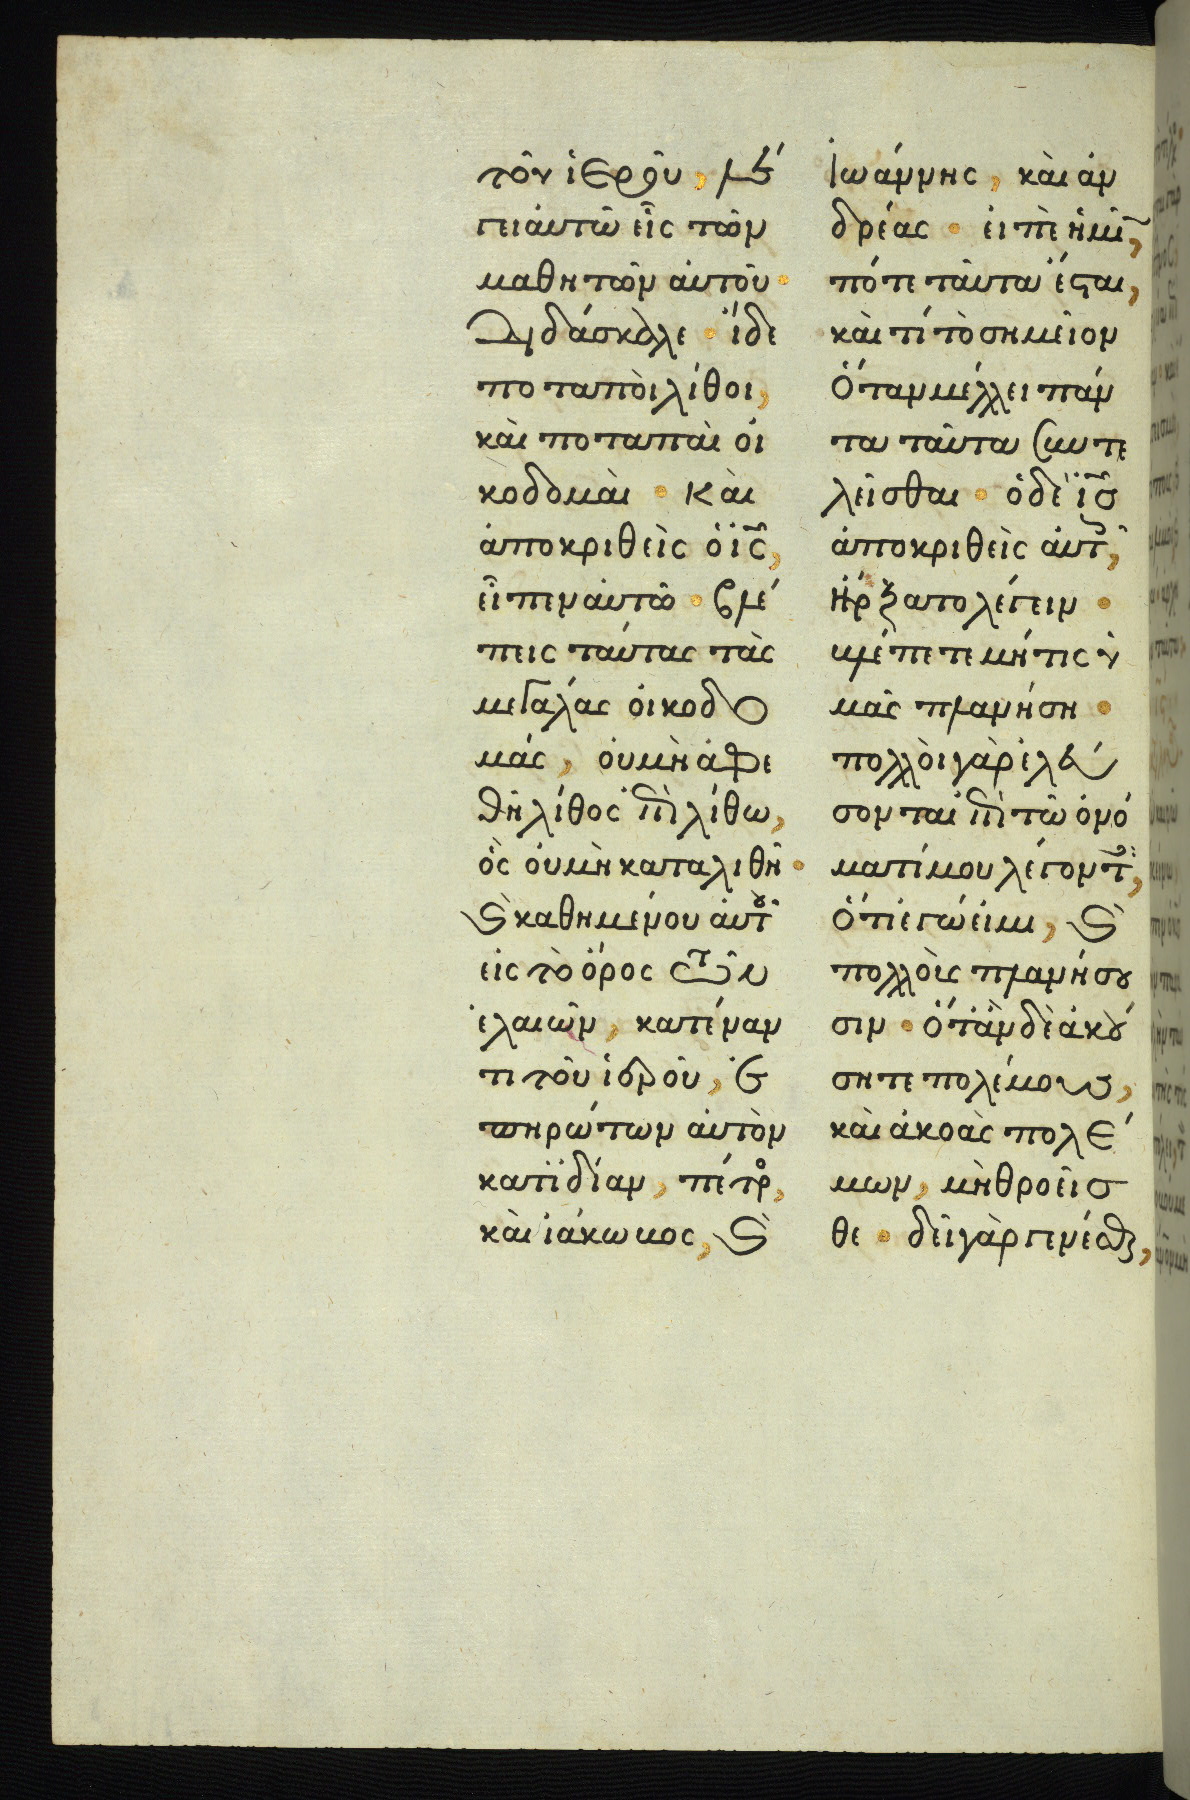 τοῦ ἱεροῦ, λέ
γει αὐτῶ εἷς τῶν
μαθητῶν αὐτοῦ·
Διδάσκαλε· ἴδε
ποταποὶ λίθοι,
καὶ ποταπαὶ οἰ
κοδομαὶ· καὶ
ἀποκριθεὶς ὁ ἰς̅,
εἶπεν αὐτῶ· βλέ
πεις ταύτας τὰς
μεγάλας οἰκοδο
μάς, οὐ μὴ ἀφε
θῆ λίθος ἐπὶ λίθω,
ὃς οὐ μὴ καταλιθῆ·
Καὶ καθημένου αὐτοῦ
εἰς τὸ ὄρος τῶν
ἐλαιῶν, κατέναν
τι τοῦ ἱεροῦ, ἐ
πηρώτων αὐτὸν
κατϊδίαν, πέτρος,
καὶ ἰάκωβος, καὶ
Ἰωάννης, καὶ ἀν
δρέας· εἰπὲ ἡμῖν,
πότε ταῦτα ἔσται,
καὶ τί τὸ σημεῖον
Ὅταν μέλλει πάν
τα ταῦτα συντε
λεῖσθαι· ὁ δὲ ἰς̅
ἀποκριθεὶς αὐτοῖς,
Ἤρξατο λέγειν·
βλέπετε μή τις ὑ
μᾶς πλανήση·
πολλοὶ γὰρ ἐλεύ
σονται ἐπὶ τῶ ὀνό
ματί μου λέγοντες,
Ὅτι ἐγώ εἰμι, καὶ
πολλοὺς πλανήσου
σιν· Ὅταν δὲ ἀκού
σητε πολέμους,
καὶ ἀκοὰς πολέ
μων, μὴ θροεῖσ
θε· δεῖ γὰρ γενέσθαι,